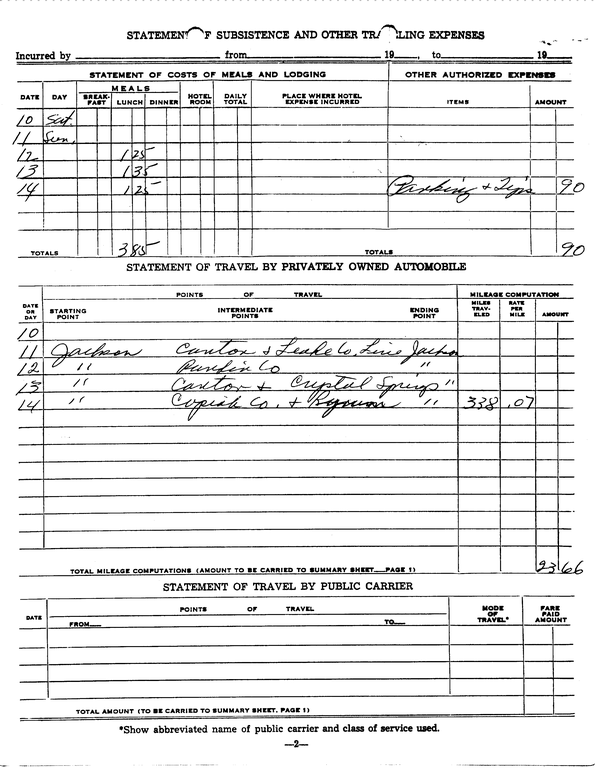 STATEMENT OF SUBSISTENCE AND OTHER TRAVELING EXPENSES
Incurred by from 19 , to 19
STATEMENT OF COSTS OF MEALS AND LODGING OTHER AUTHORIZED EXPENSES
DATE DAY MEALS BREAK-FAST LUNCH DINNER HOTEL ROOM DAILY TOTAL PLACE WHERE HOTEL EXPENSE INCURRED ITEMS AMOUNT
10 Sat.
11 Sun.
12 1 25
13 1 35
14 1 25 Parking & Tips 90
TOTALS 3 85 TOTALS 90
STATEMENT OF TRAVEL BY PRIVATELY OWNED AUTOMOBILE
POINTS OF TRAVEL MILEAGE COMPUTATION
DATE OR DAY STARTING POINT INTERMEDIATE POINTS ENDING POINT MILES TRAV-ELED RATE PER MILE AMOUNT
10
11 Jackson Canton & Leake Co. Line Jackson
12 " Rankin Co "
13 " Canton & Crystal Springs "
14 " Copiah Co. & "  338 .07
TOTAL MILEAGE COMPUTATIONS (AMOUNT TO BE CARRIED TO SUMMARY SHEET PAGE 1) 23 66
STATEMENT OF TRAVEL BY PUBLIC CARRIER
DATE POINTS OF TRAVEL MODE OF TRAVEL* FARE PAID AMOUNT
FROM TO
TOTAL AMOUNT (TO BE CARRIED TO SUMMARY SHEET, PAGE 1)
*Show abbreviated name of public carrier and class of service used.
—2—